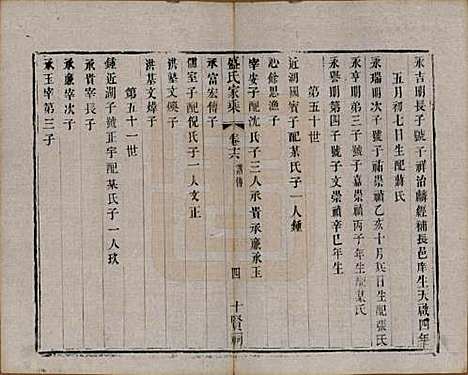 永吉明長子號子祥治麟經補長邑庠生天啟四年
五月初七日生配蔣氏
永瑞明次子號子嘉崇禎乙亥十月亥日生配張氏
永亨明第三子號子嘉崇禎丙子年生配葉氏
永譽明第四子號子文崇禎辛巳年生
第五十世
近湖國賓子配某氏子一人鍾
心餘思漁子
宰安子配沈氏子三人承貴承廉承玉
盛氏家乘
卷之六
譜傳
四
十賢祠
承富宏傳子
儒室子配倪氏子一人文正
洪塾文興子
洪基文煒子
第五十一世
鍾近湖子號正宇配某氏子一人玖
承貴宰長子
承廉宰次子
承玉宰第三子